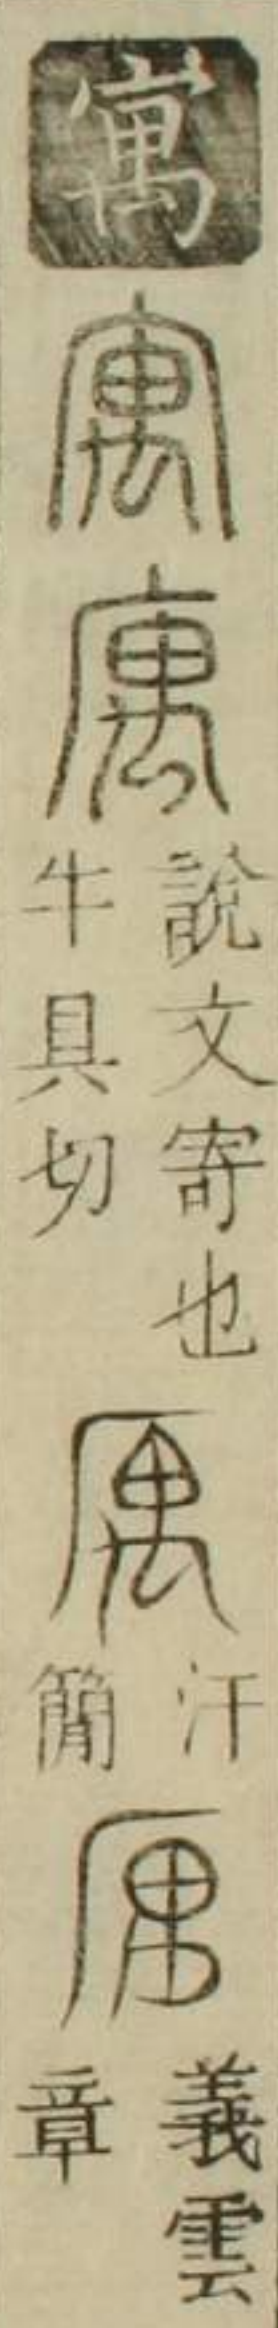 寓
寓
庽
說文寄也
牛具切
厲
汗
簡
義雲
章